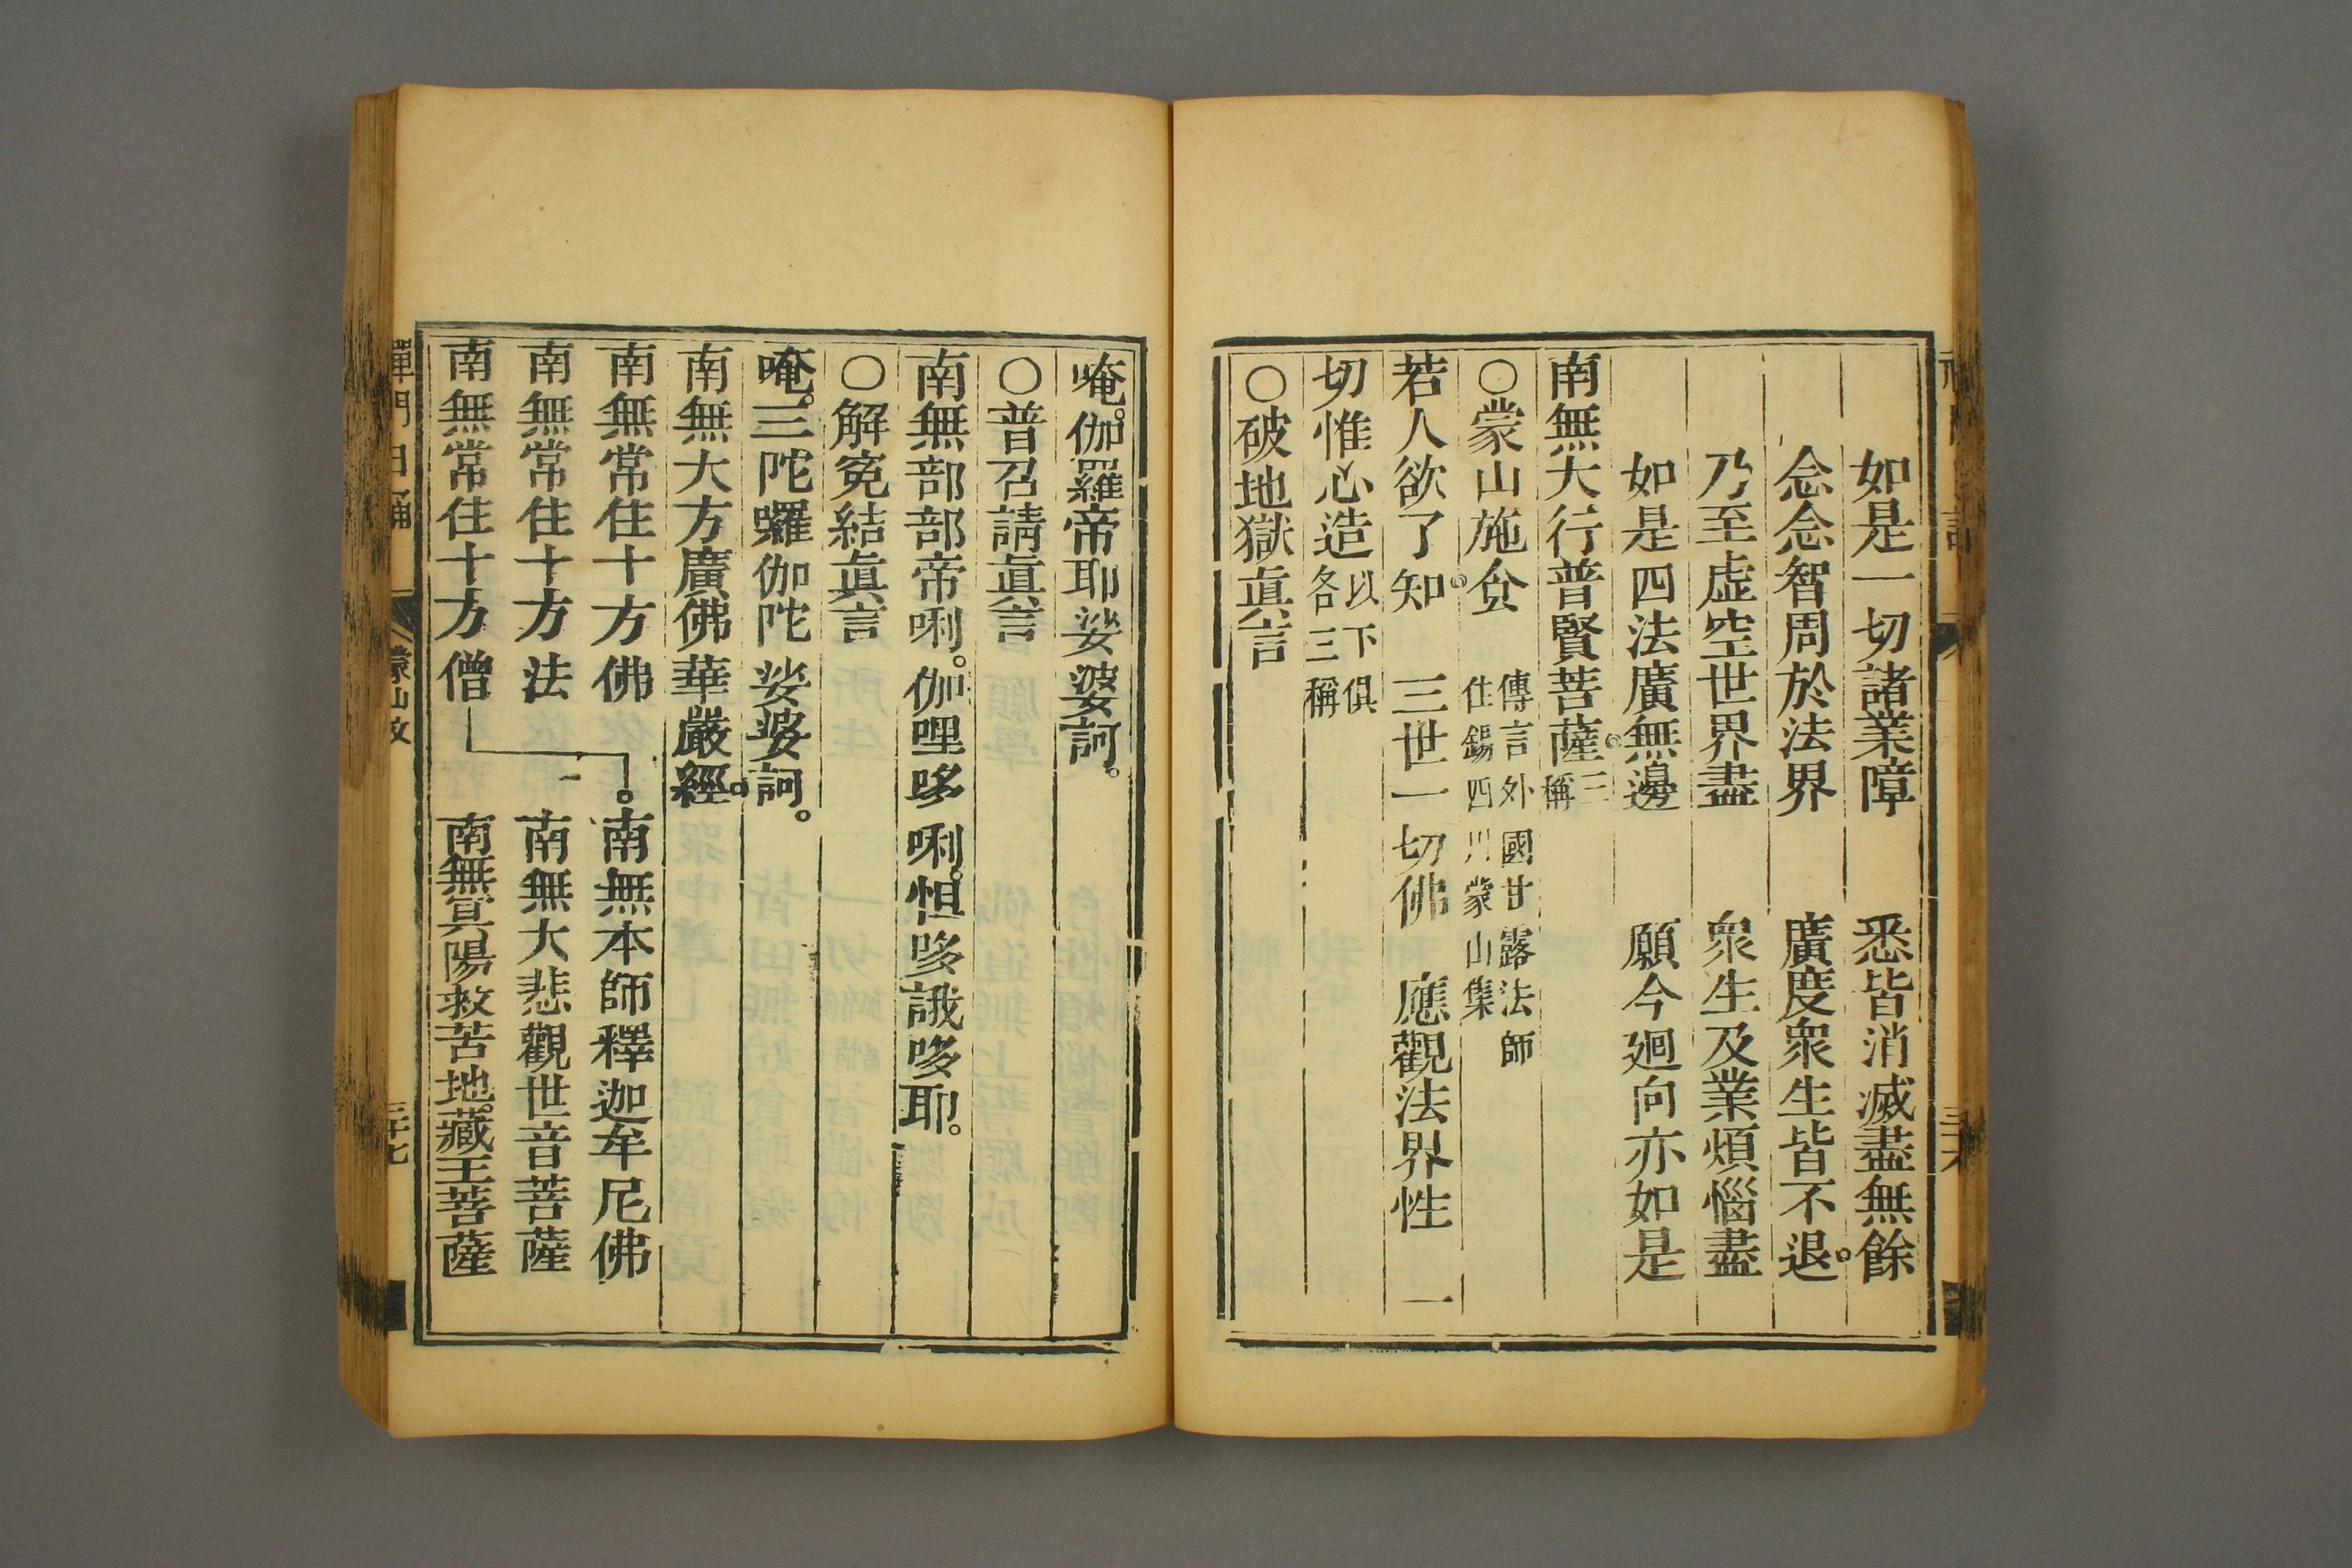 如是一切諸業障　悉皆消滅盡無餘
念念智周於法界　廣度眾生皆不退。
乃至虛空世界盡　眾生及業煩惱盡
如是四法廣無邊　願今廻向亦如是
南無大行普賢菩薩。三稱
○蒙山施食　傳言外國甘露法師住錫四川蒙山集
若人欲了知。三世一切佛　應觀法界性　一
切惟心造以下俱各三稱
○破地獄眞言
唵。伽羅帝耶娑婆訶。
○普召請眞言
南無部部帝唎。伽哩哆唎。怛哆誐哆耶。
○解寃結眞言
唵。三陀囉伽陀娑婆訶。
南無大方廣佛華嚴經。
南無常住十方佛　。南無本師釋迦牟尼佛
南無常住十方法　南無大悲觀世音菩薩
南無常住十方僧　南無冥陽救苦地藏王菩薩
禪門日誦　蒙山文　三十七
三十六